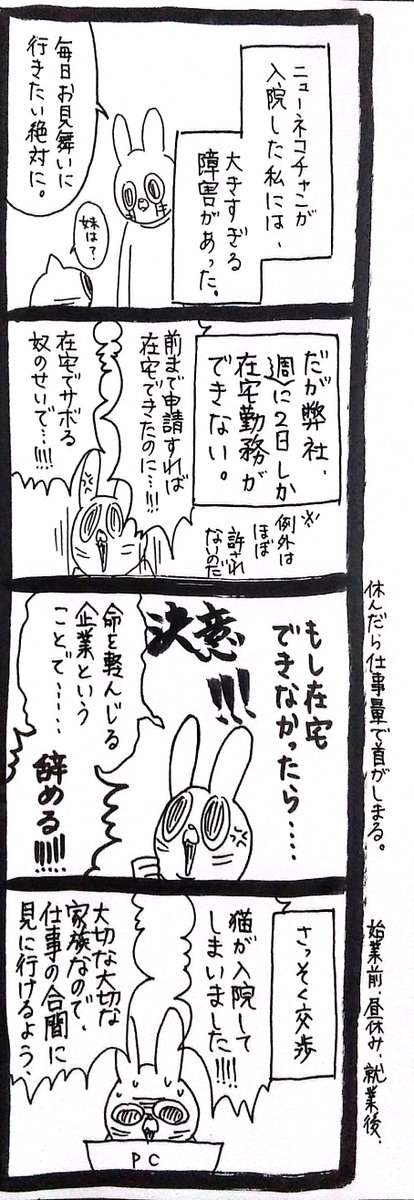 ニューネコチャンが
入院した私には、
大きすぎる
障害があった。
毎日お見舞いに
行きたい絶対に。
妹は？
だが弊社、
週に2日しか
在宅勤務が
できない。
※例外は
ほぼ
許され
ないのだ
前まで申請すれば
在宅できたのに…!!!
在宅でサボる
奴のせいで…!!!!
もし在宅
できなかったら……
決意!!!
命を軽んじる
企業という
ことで……
辞める!!!!!
さっそく交歩
猫が入院して
しまいました!!!!
大切な大切な
家族なので、
仕事の合間に
見に行けるよう、
PC
休んだら仕事量で首がしまる。
始業前、昼休み、就業後、